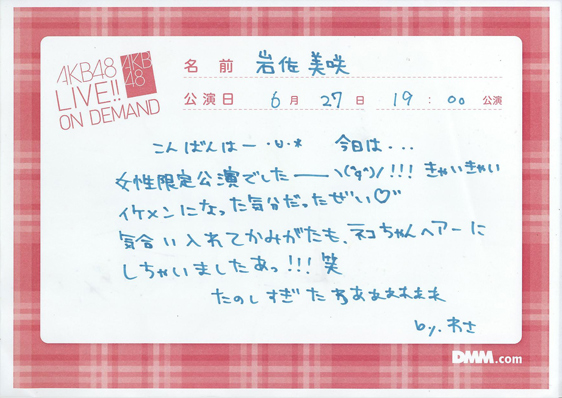 AKB48
LIVE!!
ON DEMAND
AKB
48
名前 岩佐美咲
公演日 6月27日 19:00 公演
こんばんはー・U・* 今日は...
女性限定公演でしたーヽ(°3°)/!!! きゃいきゃい
イケメンになった気分だったぜい♡
気合い入れてかみがたも、ネコちゃんヘアーに
しちゃいましたあっ!!!笑
たのしすぎたわあぁぁぁぁぁ
by.わさ
DMM.com